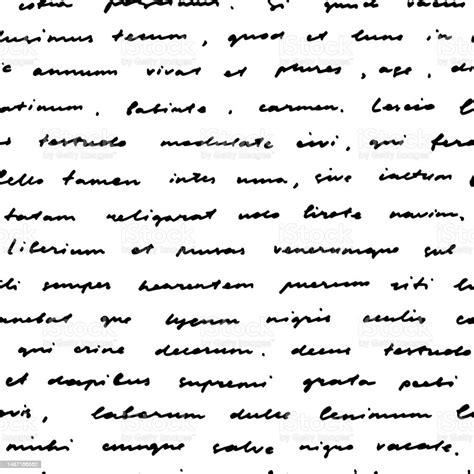 quid vacui
lusimus tecum, quod et hunc in
annum vivat et plures, age, di
atinum, babiute, carmen. Lescio
testudo modulate civi, qui fero
bello tamen inter uma, sive iactum
tatam religarat udo litote navim,
Liberium et musas veneremque
li semper haerentem puerum
anebat que lycum nigris oculis
qui crine decorum. decus testudo
et dapibus supremi grata
ovis, laborum dulce lenimum
mihi cumque salve nigro vocate.
iStock
by Getty Images
1467186552